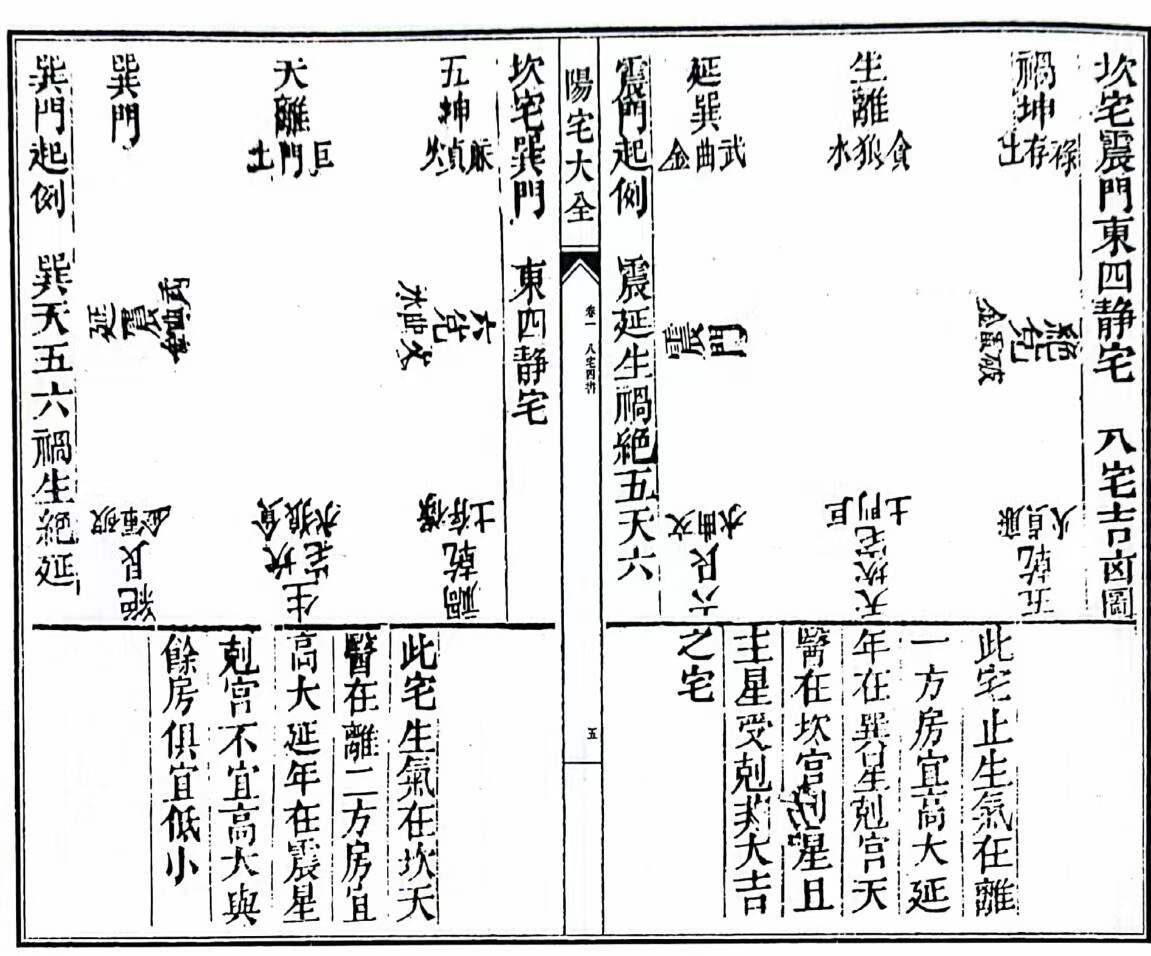 坎宅震門東四静宅 八宅吉凶圖
禍坤
禄存土
生離
貪狼水
延巽
武曲金
絕兌
破軍金
震門
五乾
廉貞火
天坎宅
巨門土
六艮
文曲水
震門起例 震延生禍絕五天六
此宅止生氣在離
一方房宜高大延
年在巽星剋宫天
醫在坎宫星且
主星受剋非大吉
之宅
陽宅大全
卷一 八宅四書
五
坎宅巽門 東四静宅
五坤
廉貞火
天離
巨門土
巽門
六兌
文曲水
延震
武曲金
禍乾
禄存土
生坎宅
貪狼水
絕艮
破軍金
巽門起例 巽天五六禍生絕延
此宅生氣在坎天
醫在離二方房宜
高大延年在震星
剋宫不宜高大與
餘房俱宜低小